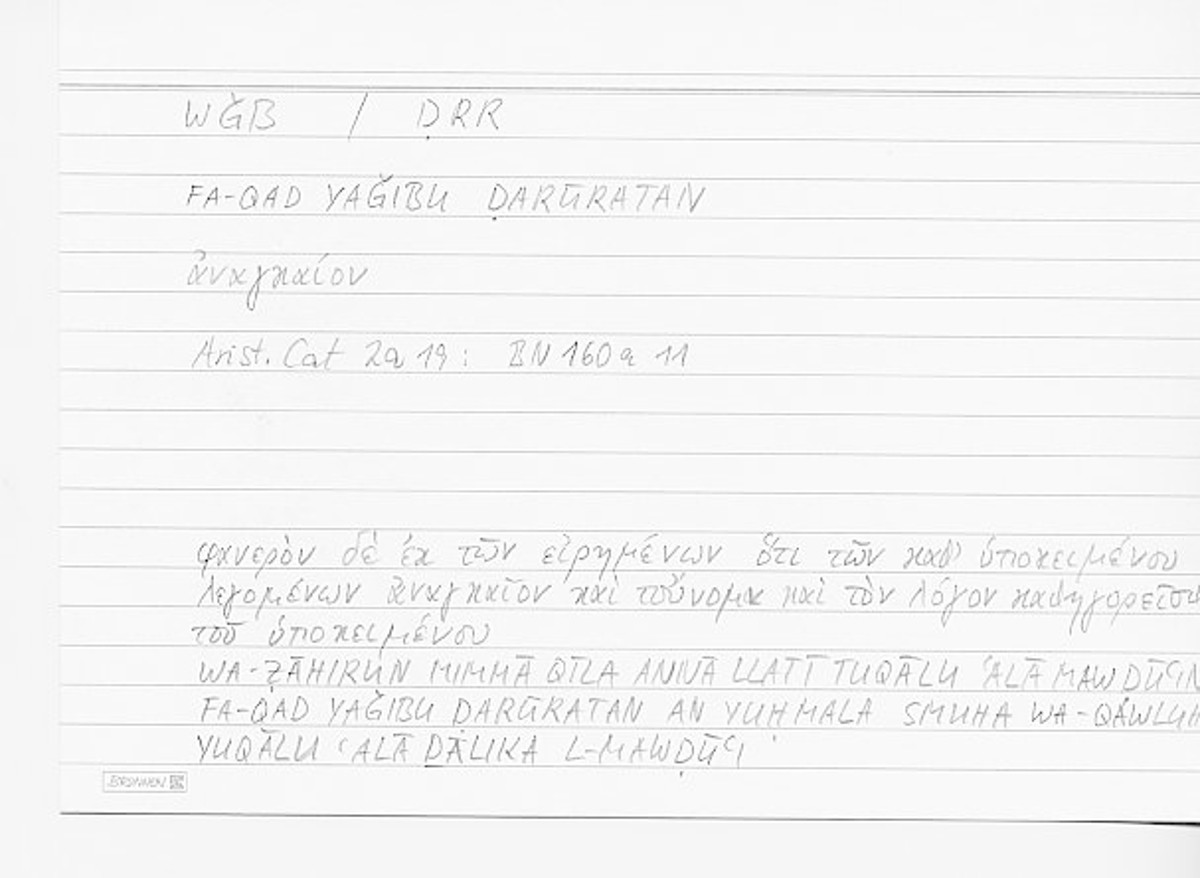 WǦB / ḌRR
FA-QAD YAǦIBU ḌARŪRATAN
ἀναγκαίον
Arist. Cat 2a 19 : BN 160a 11
φανερὸν δὲ ἐκ τῶν εἰρημένων ὅτι τῶν καθ' ὑποκειμένου
λεγομένων ἀναγκαῖον καὶ τοὔνομα καὶ τὸν λόγον
τοῦ ὑποκειμένου
WA-ẒĀHIRUN MIMMĀ QĪLA ANNA LLATĪ TUQĀLU ʿALĀ MAWḌŪʿIN
FA-QAD YAǦIBU ḌARŪRATAN AN YUḤMALA SMUHA
YUQĀLU ʿALĀ ḎĀLIKA L-MAWḌŪʿI
BRUNNEN